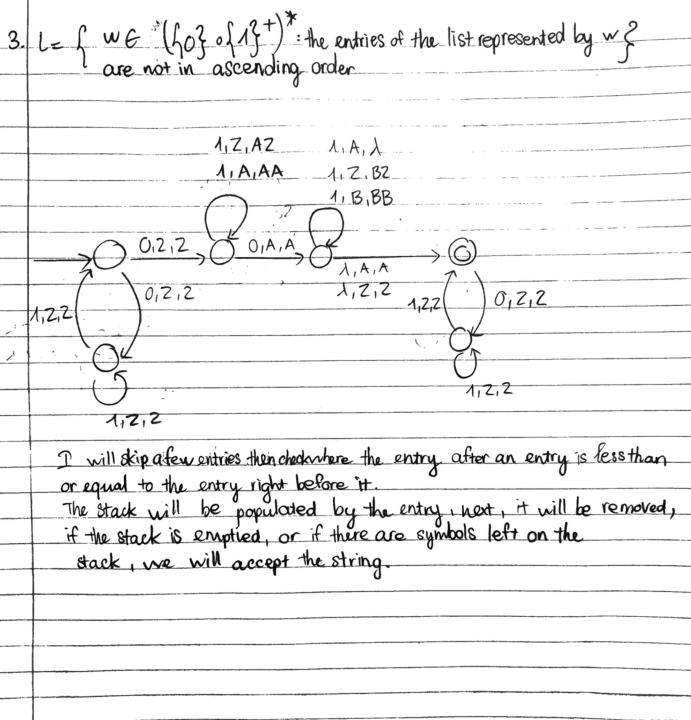 3. L = { w ∈ ({0} ∘ {1}⁺)* : the entries of the list represented by w }
are not in ascending order
1, Z, AZ
1, A, AA
1, A, λ
1, Z, BZ
1, B, BB
0, Z, Z
0, A, A
λ, A, A
λ, Z, Z
0, Z, Z
1, Z, Z
1, Z, Z
0, Z, Z
1, Z, Z
1, Z, Z
I will skip a few entries then check where the entry after an entry is less than
or equal to the entry right before it.
The stack will be populated by the entry, next, it will be removed,
if the stack is emptied, or if there are symbols left on the
stack, we will accept the string.